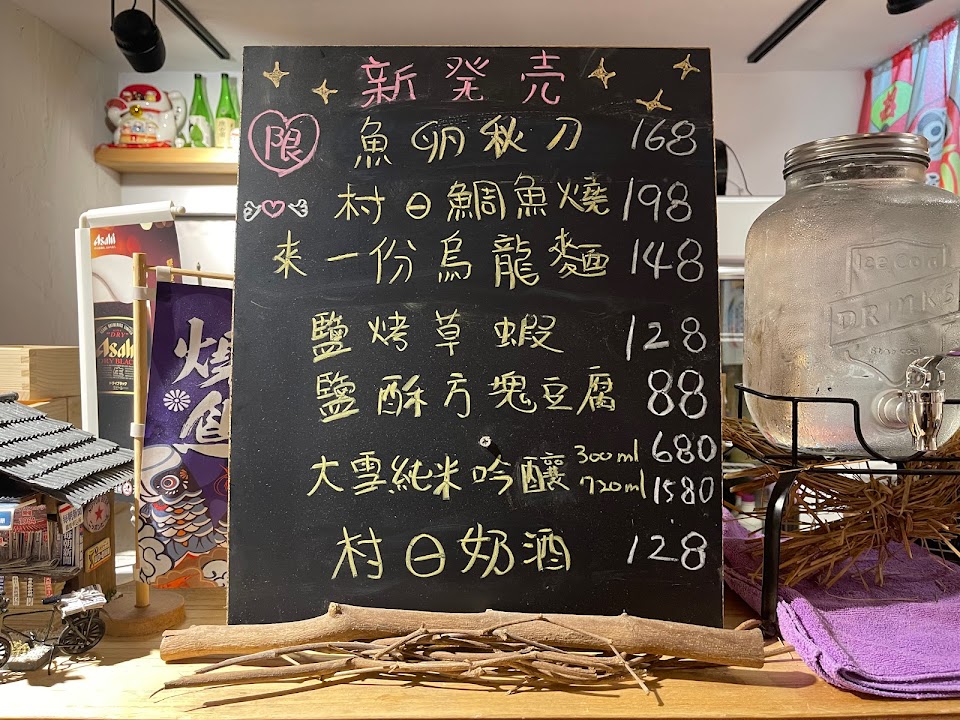 新発売
限 魚卵秋刀 168
村日鯛魚燒 198
來一份烏龍麵 148
鹽烤草蝦 128
鹽酥方塊豆腐 88
大雪純米吟釀 300ml 680
720ml 1580
村日奶酒 128
Asahi
Asahi
DRY BLACK
燒鳥
Ice Cold
DRINKS